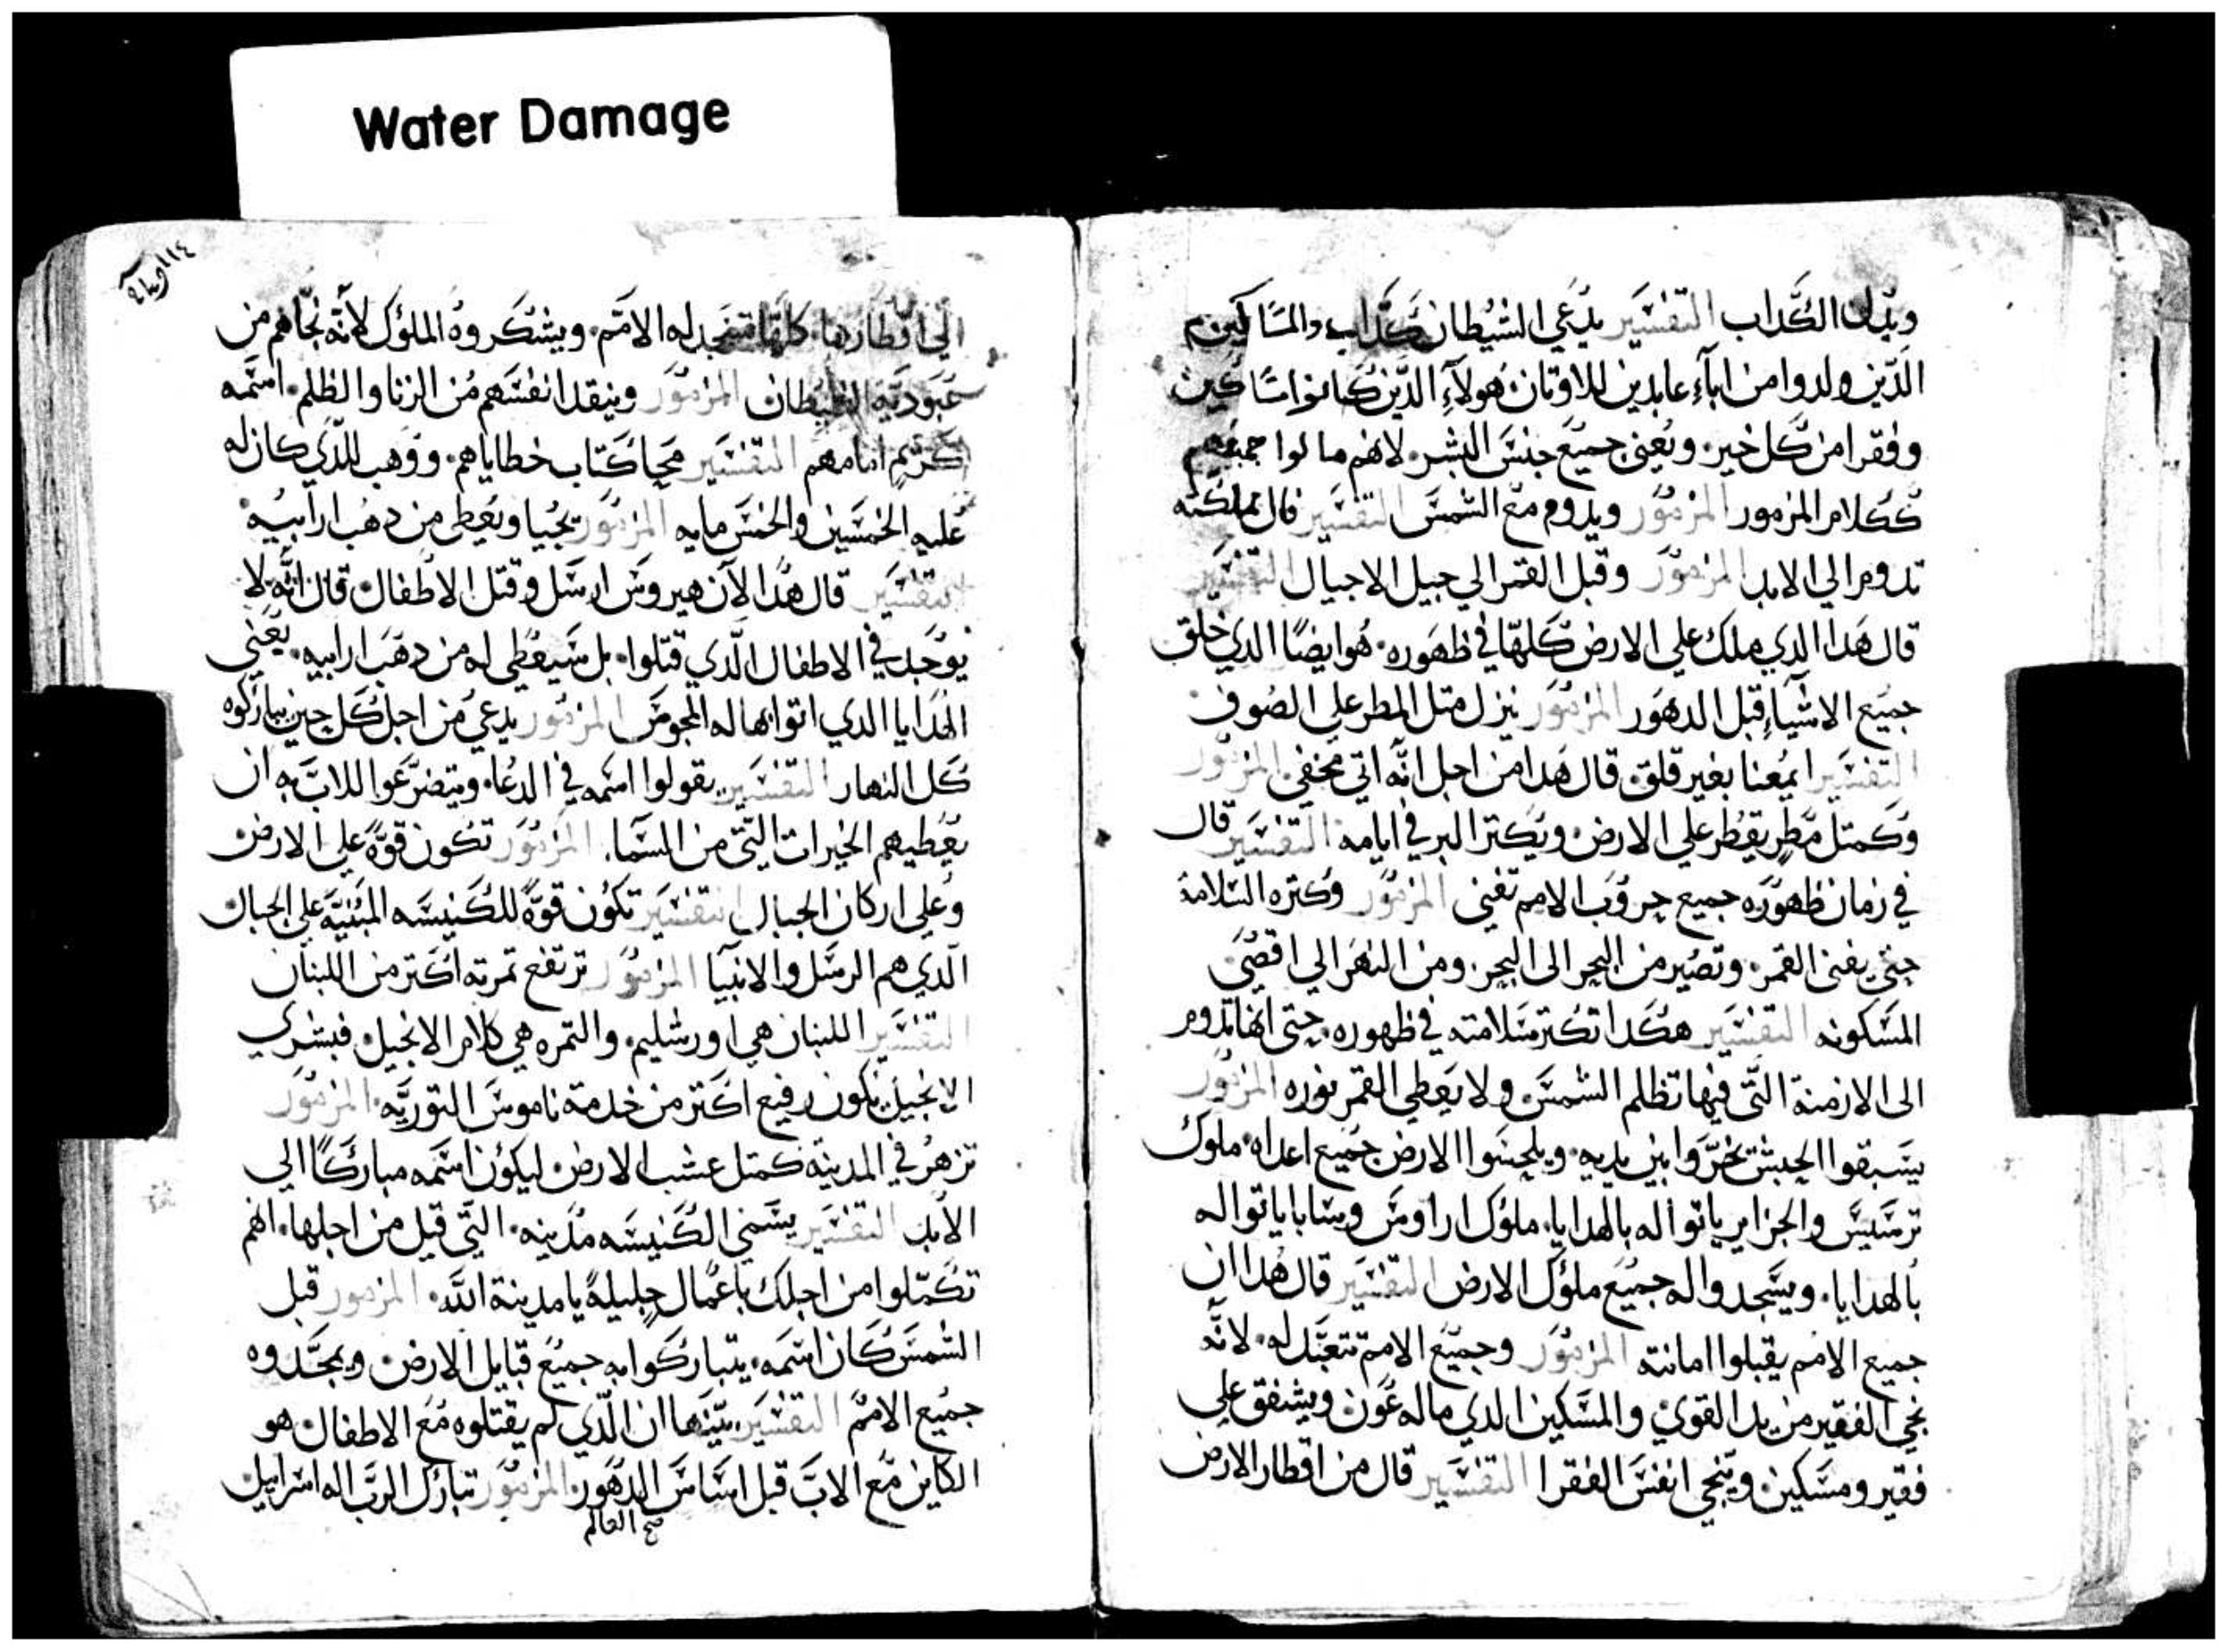 Water Damage
ويدل الكداب التفسير يدعي الشيطان كداب والمساكين هم
الدين ولدوا من ابآء عابدين للاوتان هولآء الدين كانوا مساكين
وفقرا من كل خير ويعني جميع جنس البشر لانهم مالوا جميعهم
ككلام المزمور المزمور ويدوم مع الشمس التفسير قال مملكته
تدوم الي الابد المزمور وقبل القمر الي جيل الاجيال التفسير
قال هدا الدي ملك علي الارض كلها في ظهوره هو ايضا الدي خلق
جميع الاشيآء قبل الدهور المزمور ينزل متل المطر علي الصوف
التفسير ايمعنا بغير قلق قال هدا من اجل انه اتي مخفي المزمور
وكمتل مطر يقطر علي الارض ويكتر البر في ايامه التفسير قال
في زمان ظهوره جميع حروب الامم تفني المزمور وكتره السلامة
حتي يفنى القمر وتصير من البحر الى البحر ومن النهر الي اقصي
المسكونه التفسير هكدا تكتر سلامته في ظهوره حتى انها تدوم
الى الازمنة التي فيها تظلم الشمس ولا يعطي القمر نوره المزمور
يسبقوا الحبش يخروا بين يديه ويلحسوا الارض جميع اعداه ملوك
ترسيس والجزاير ياتوا له بالهدايا ملوك اراوس وسابا ياتوا له
بالهدايا ويسجدوا له جميع ملوك الارض التفسير قال هدا ان
جميع الامم يقبلوا امانته المزمور وجميع الامم تتعبد له لانه
نجي الفقير من يد القوي والمسكين الدي ماله عون ويشفق علي
فقير ومسكين وينجي انفس الفقرا التفسير قال من اقطار الارض
الي اقطارها كلها تسجد له الامم ويشكروه الملوك لانه نجاهم من
عبودية الشيطان المزمور وينقد انفسهم من الربا والظلم اسمه
كريم امامهم التفسير محيا كتاب خطاياهم ووهب للدي كان له
عليه الخمسين والخمس مايه المزمور يحيا ويعطي من دهب ارابيه
التفسير قال هدا الآن هيرودس ارسل وقتل الاطفال قال انه لا
يوجد في الاطفال الدي قتلوا بل سيعطي له من دهب ارابيه يعني
الهدايا الدي اتوا بها له المجوس المزمور يدعي من اجل كل حين يباركوه
كل النهار التفسير يقولوا اسمه في الدعا ويتضرعوا للاب به ان
يعطيهم الخيرات التي من السما المزمور تكون قوة علي الارض
وعلي اركان الجبال التفسير تكون قوة للكنيسه المبنية علي الجبال
الدي هم الرسل والانبيا المزمور ترتفع تمرته اكتر من اللبنان
التفسير اللبنان هي اورشليم والتمره هي كلام الانجيل فبشري
الانجيل يكون رفيع اكتر من خدمة ناموس التوريه المزمور
تزهر في المدينه كمتل عشب الارض ليكون اسمه مباركا الي
الابد التفسير يسمي الكنيسه مدينه التي قيل من اجلها انهم
تكملوا من اجلك باعمال جليلة يا مدينة الله المزمور قبل
الشمس كان اسمه يتباركوا به جميع قبايل الارض ويمجدوه
جميع الامم التفسير بينها ان الدي لم يقتلوه مع الاطفال هو
الكاين مع الاب قبل اساس الدهور المزمور تبارك الرب اله اسراييل
صح العالم